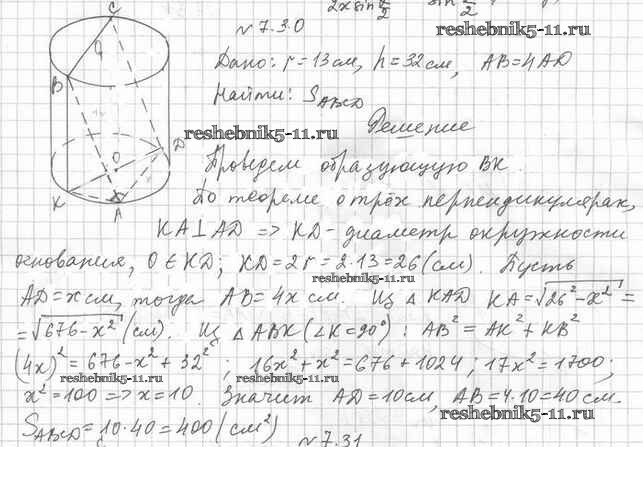 2x sin α/2 sin α/2
reshebnik5-11.ru
№ 7.30
Дано: r = 13 см, h = 32 см, AB = 4AD
Найти: S_ABCD
reshebnik5-11.ru
Решение
C
B
D
O
K
A
Проведем образующую BK.
По теореме о трёх перпендикулярах,
KA ⊥ AD => KD - диаметр окружности
основания, O ∈ KD; KD = 2r = 2·13 = 26 (см). Пусть
reshebnik5-11.ru
AD = x см, тогда AB = 4x см. Из △ KAD KA = √(26² - x²) =
= √(676 - x²) (см). Из △ ABK (∠K = 90°): AB² = AK² + KB²
reshebnik5-11.ru
(4x)² = 676 - x² + 32²; 16x² + x² = 676 + 1024; 17x² = 1700;
reshebnik5-11.ru reshebnik5-11.ru
x² = 100 => x = 10. Значит AD = 10 см, AB = 4·10 = 40 см.
reshebnik5-11.ru
S_ABCD = 10·40 = 400 (см²)
№ 7.31